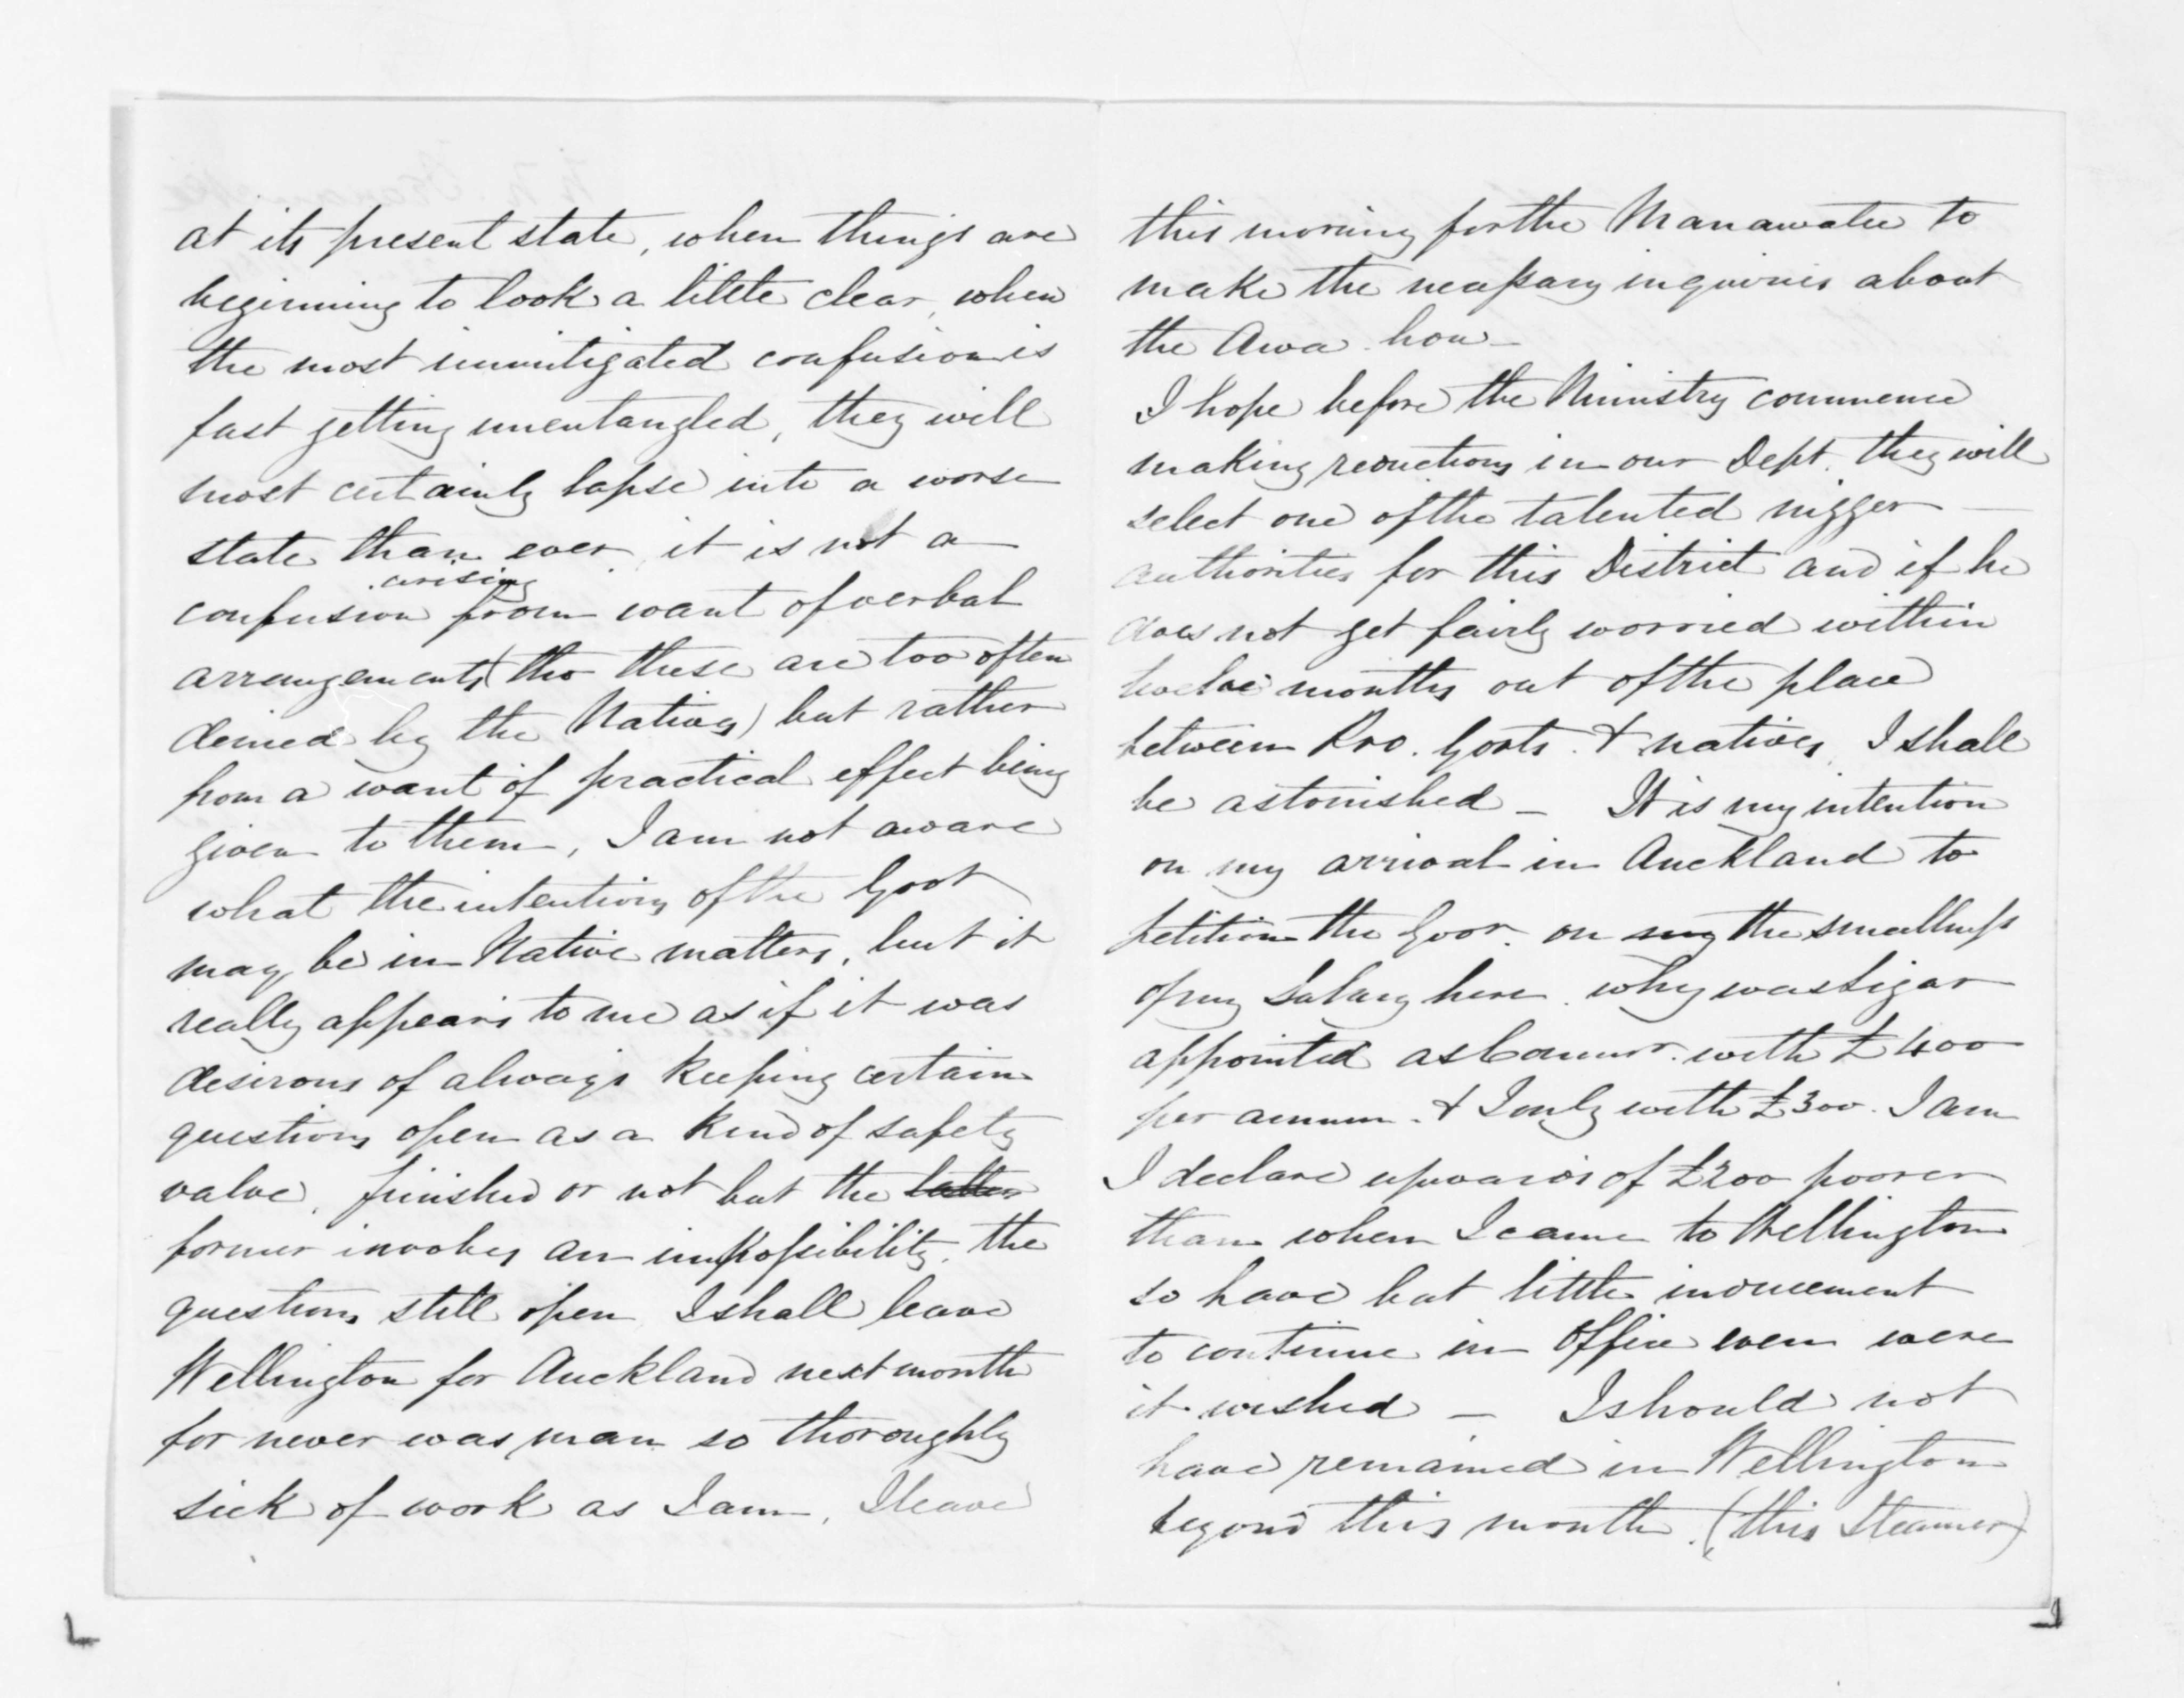 at its present state, when things are
beginning to look a little clear, when
the most unmitigated confusion is
fast getting unentangled, they will
most certainly lapse into a worse
state than ever, it is not a
arising
confusion from want of verbal
arrangements (tho these are too often
denied by the Natives) but rather
from a want of practical effect being
given to them, I am not aware
what the intentions of the Govt
may be in Native matters, but it
really appears to me as if it was
desirous of always keeping certain
questions open as a kind of safety
valve, finished or not but the latter
former involves an impossibility. the
questions still open I shall leave
Wellington for Auckland next month
for never was man so thoroughly
sick of work as I am, I leave
this morning for the Manawatu to
make the necessary inquiries about
the Awa hou
I hope before the Ministry commence
making reductions in our Dept. they will
select one of the talented nigger
authorities for this District and if he
does not get fairly worried within
twelve months out of the place
between Pro. Govts. & natives, I shall
be astonished – It is my intention
on my arrival in Auckland to
petition the Govr. on my the smallness
of my Salary here. why was Ligar
appointed as Commr. with £400
per annum. & I only with £300. I am
I declare upwards of £200 poorer
than when I came to Wellington
so have but little inducement
to continue in Office even were
it wished – I should not
have remained in Wellington
beyond this month. (this Steamer)